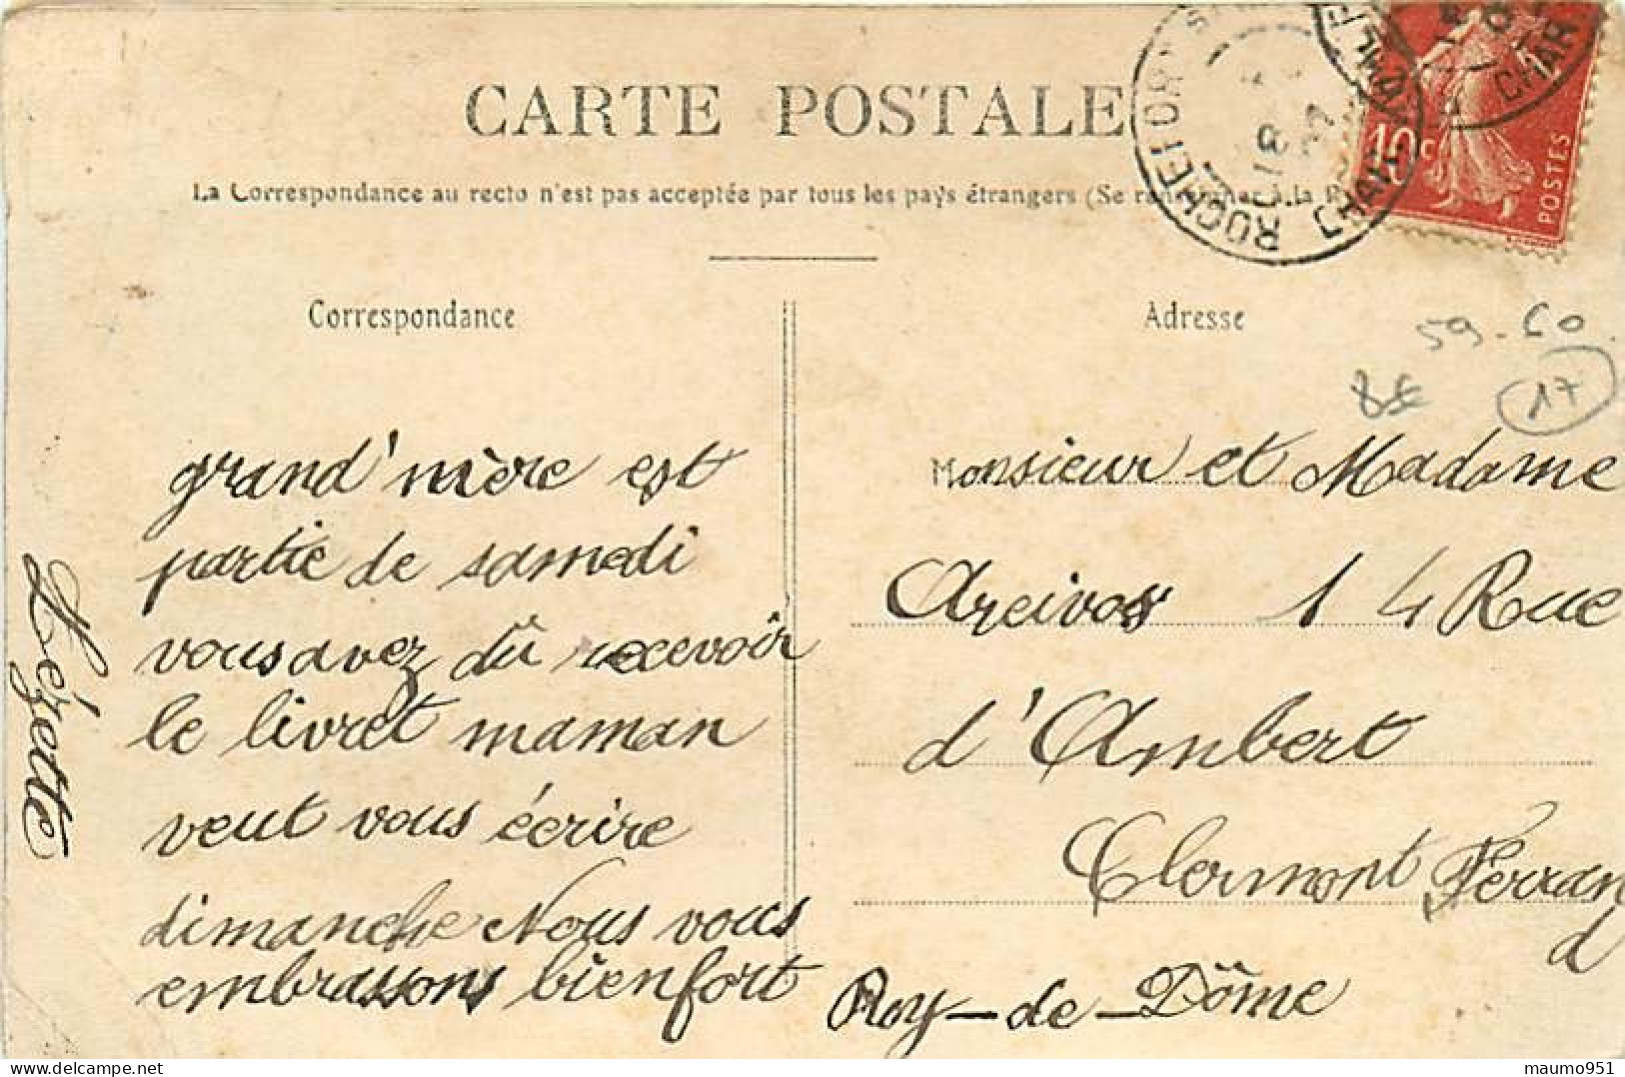 CARTE POSTALE
La Correspondance au recto n'est pas acceptée par tous les pays étrangers (Se renseigner à la R
ROCHEFORT
CHAR
10 c
POSTES
Correspondance
Adresse
59-60
8€
17
grand'mère est
partie de samedi
vous avez dû recevoir
le livret maman
veut vous écrire
dimanche Nous vous
embrassons bien fort
Zézette
Monsieur et Madame
Areivos 14 Rue
d'Ambert
Clermont Ferran
d
Roy-de-Dôme
maumo951